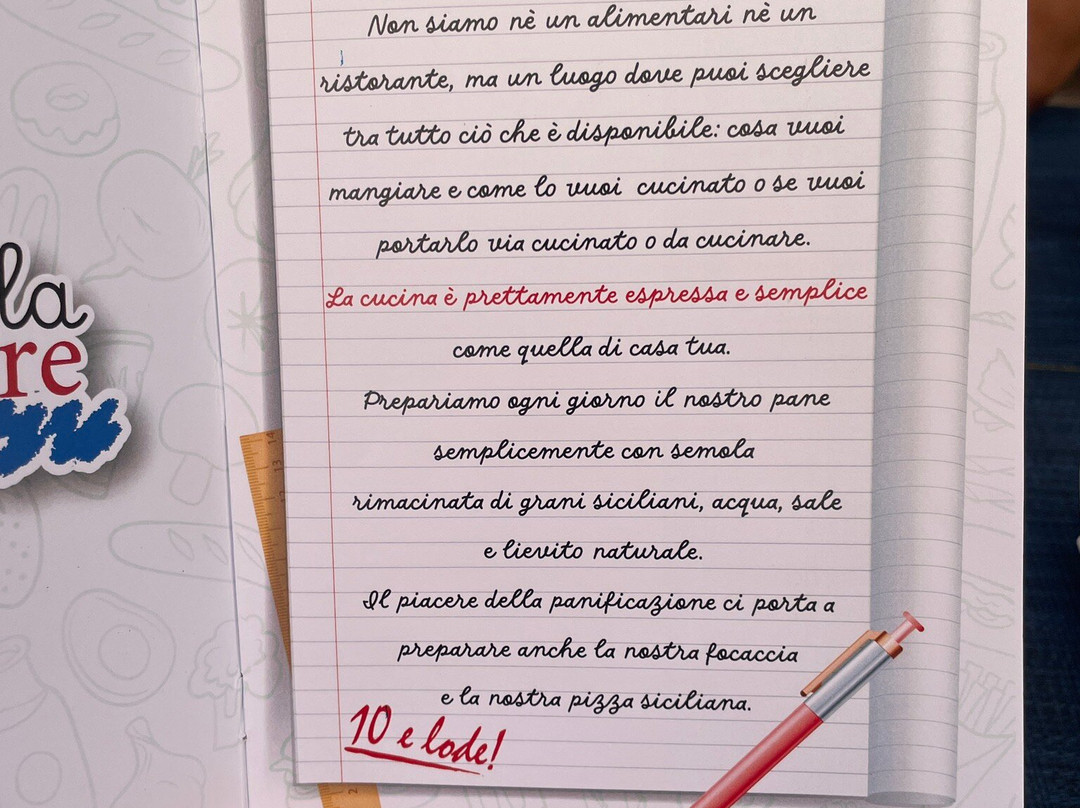 Non siamo nè un alimentari nè un
ristorante, ma un luogo dove puoi scegliere
tra tutto ciò che è disponibile: cosa vuoi
mangiare e come lo vuoi cucinato o se vuoi
portarlo via cucinato o da cucinare.
La cucina è prettamente espressa e semplice
come quella di casa tua.
Prepariamo ogni giorno il nostro pane
semplicemente con semola
rimacinata di grani siciliani, acqua, sale
e lievito naturale.
Il piacere della panificazione ci porta a
preparare anche la nostra focaccia
e la nostra pizza siciliana.
10 e lode!
la
re
14
13